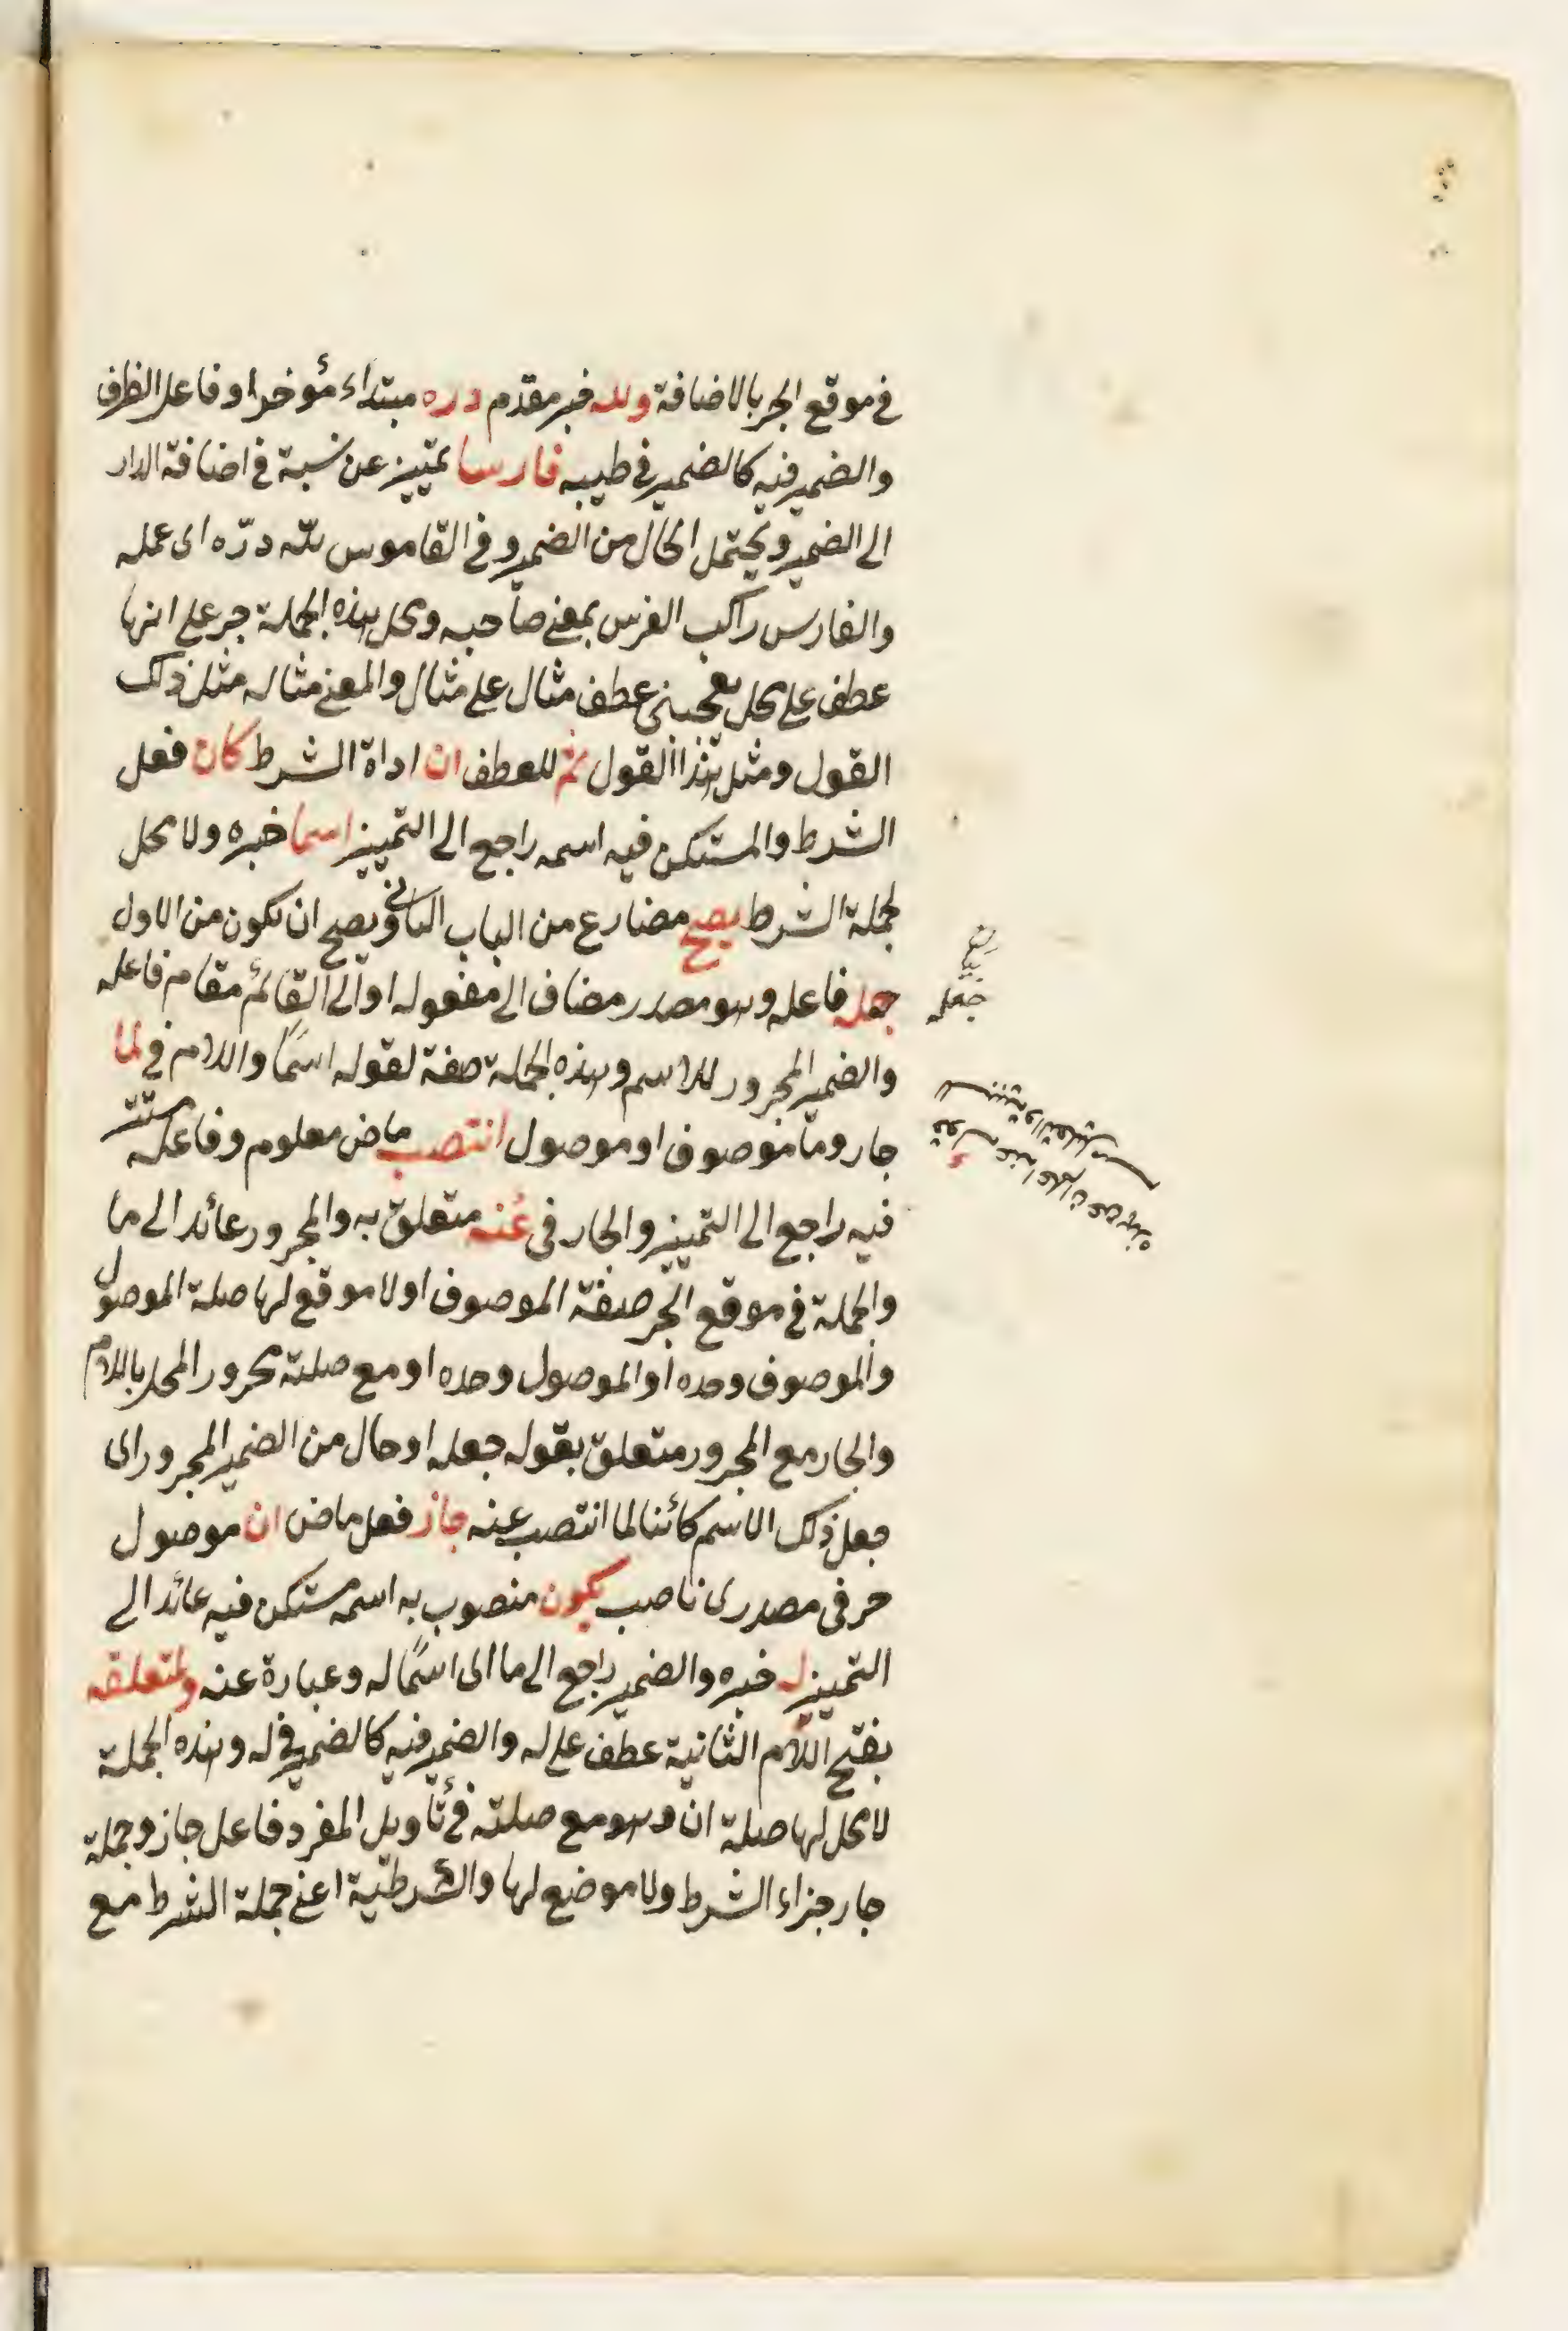 في موقع الجر بالاضافة ولله خبر مقدم دره مبتداء مؤخر او فاعل الظرف
والضمير فيه كالضمير في طيبه فارسا تمييز عن نسبة في اضافة الدار
الى الضمير ويحتمل الحال من الضمير وفي القاموس لله درّه اى عمله
والفارس راكب الفرس بمعنى صاحبه ومحل هذه الجملة جر على انها
عطف على محل يعجبنى عطف مثال على مثال والمعنى مثاله مثل ذلك
القول ومثل هذا القول ثم للعطف ان اداة الشرط كان فعل
الشرط والمستكن فيه اسمه راجع الى التمييز اسما خبره ولا محل
لجملة الشرط يصح مضارع من الباب الثانى ويصح ان يكون من الاول
جعله فاعله وهو مصدر مضاف الى مفعوله او الى القائم مقام فاعله
والضمير المجرور للاسم وهذه الجملة صفة لقوله اسمًا واللام في لما
جار وما موصوف او موصول انتصب ماض معلوم وفاعله مستتر
فيه راجع الى التمييز والجار في عنه متعلق به والمجرور عائد الى ما
والجملة في موقع الجر صفة الموصوف او لا موقع لها صلة الموصول
والموصوف وحده او الموصول وحده او مع صلته مجرور المحل باللام
والجار مع المجرور متعلق بقوله جعله او حال من الضمير المجرور اى
جعل ذلك الاسم كائنا لما انتصب عنه جاز فعل ماض ان موصول
حرفى مصدرى ناصب يكون منصوب به اسمه مستكن فيه عائد الى
التمييز له خبره والضمير راجع الى ما اى اسمًا له وعبارة عنه ولمتعلقه
بفتح اللام الثانية عطف على له والضمير فيه كالضمير في له وهذه الجملة
لا محل لها صلة ان وهو مع صلته في تأويل المفرد فاعل جاز وجملة
جار جزاء الشرط ولا موضع لها والشرطية اعنى جملة الشرط مع
جعله